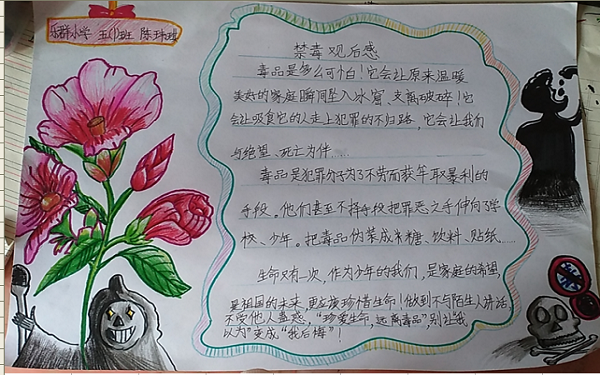 乐群小学 五(1)班 陈
禁毒观后感
毒品是多么可怕！它会让原来温暖
美好的家庭瞬间坠入冰窖、支离破碎！它
会让吸食它的人走上犯罪的不归路，它会让我们
与绝望、死亡为伴……
毒品是犯罪分子为了不劳而获牟取暴利的
手段。他们甚至不择手段把罪恶之手伸向了学
校、少年。把毒品伪装成米糖、饮料、贴纸……
生命只有一次，作为少年的我们，是家庭的希望，
是祖国的未来，更应度珍惜生命！做到不与陌生人讲话、
不受他人蛊惑。“珍爱生命，远离毒品”别让我
以为”变成“我后悔”！